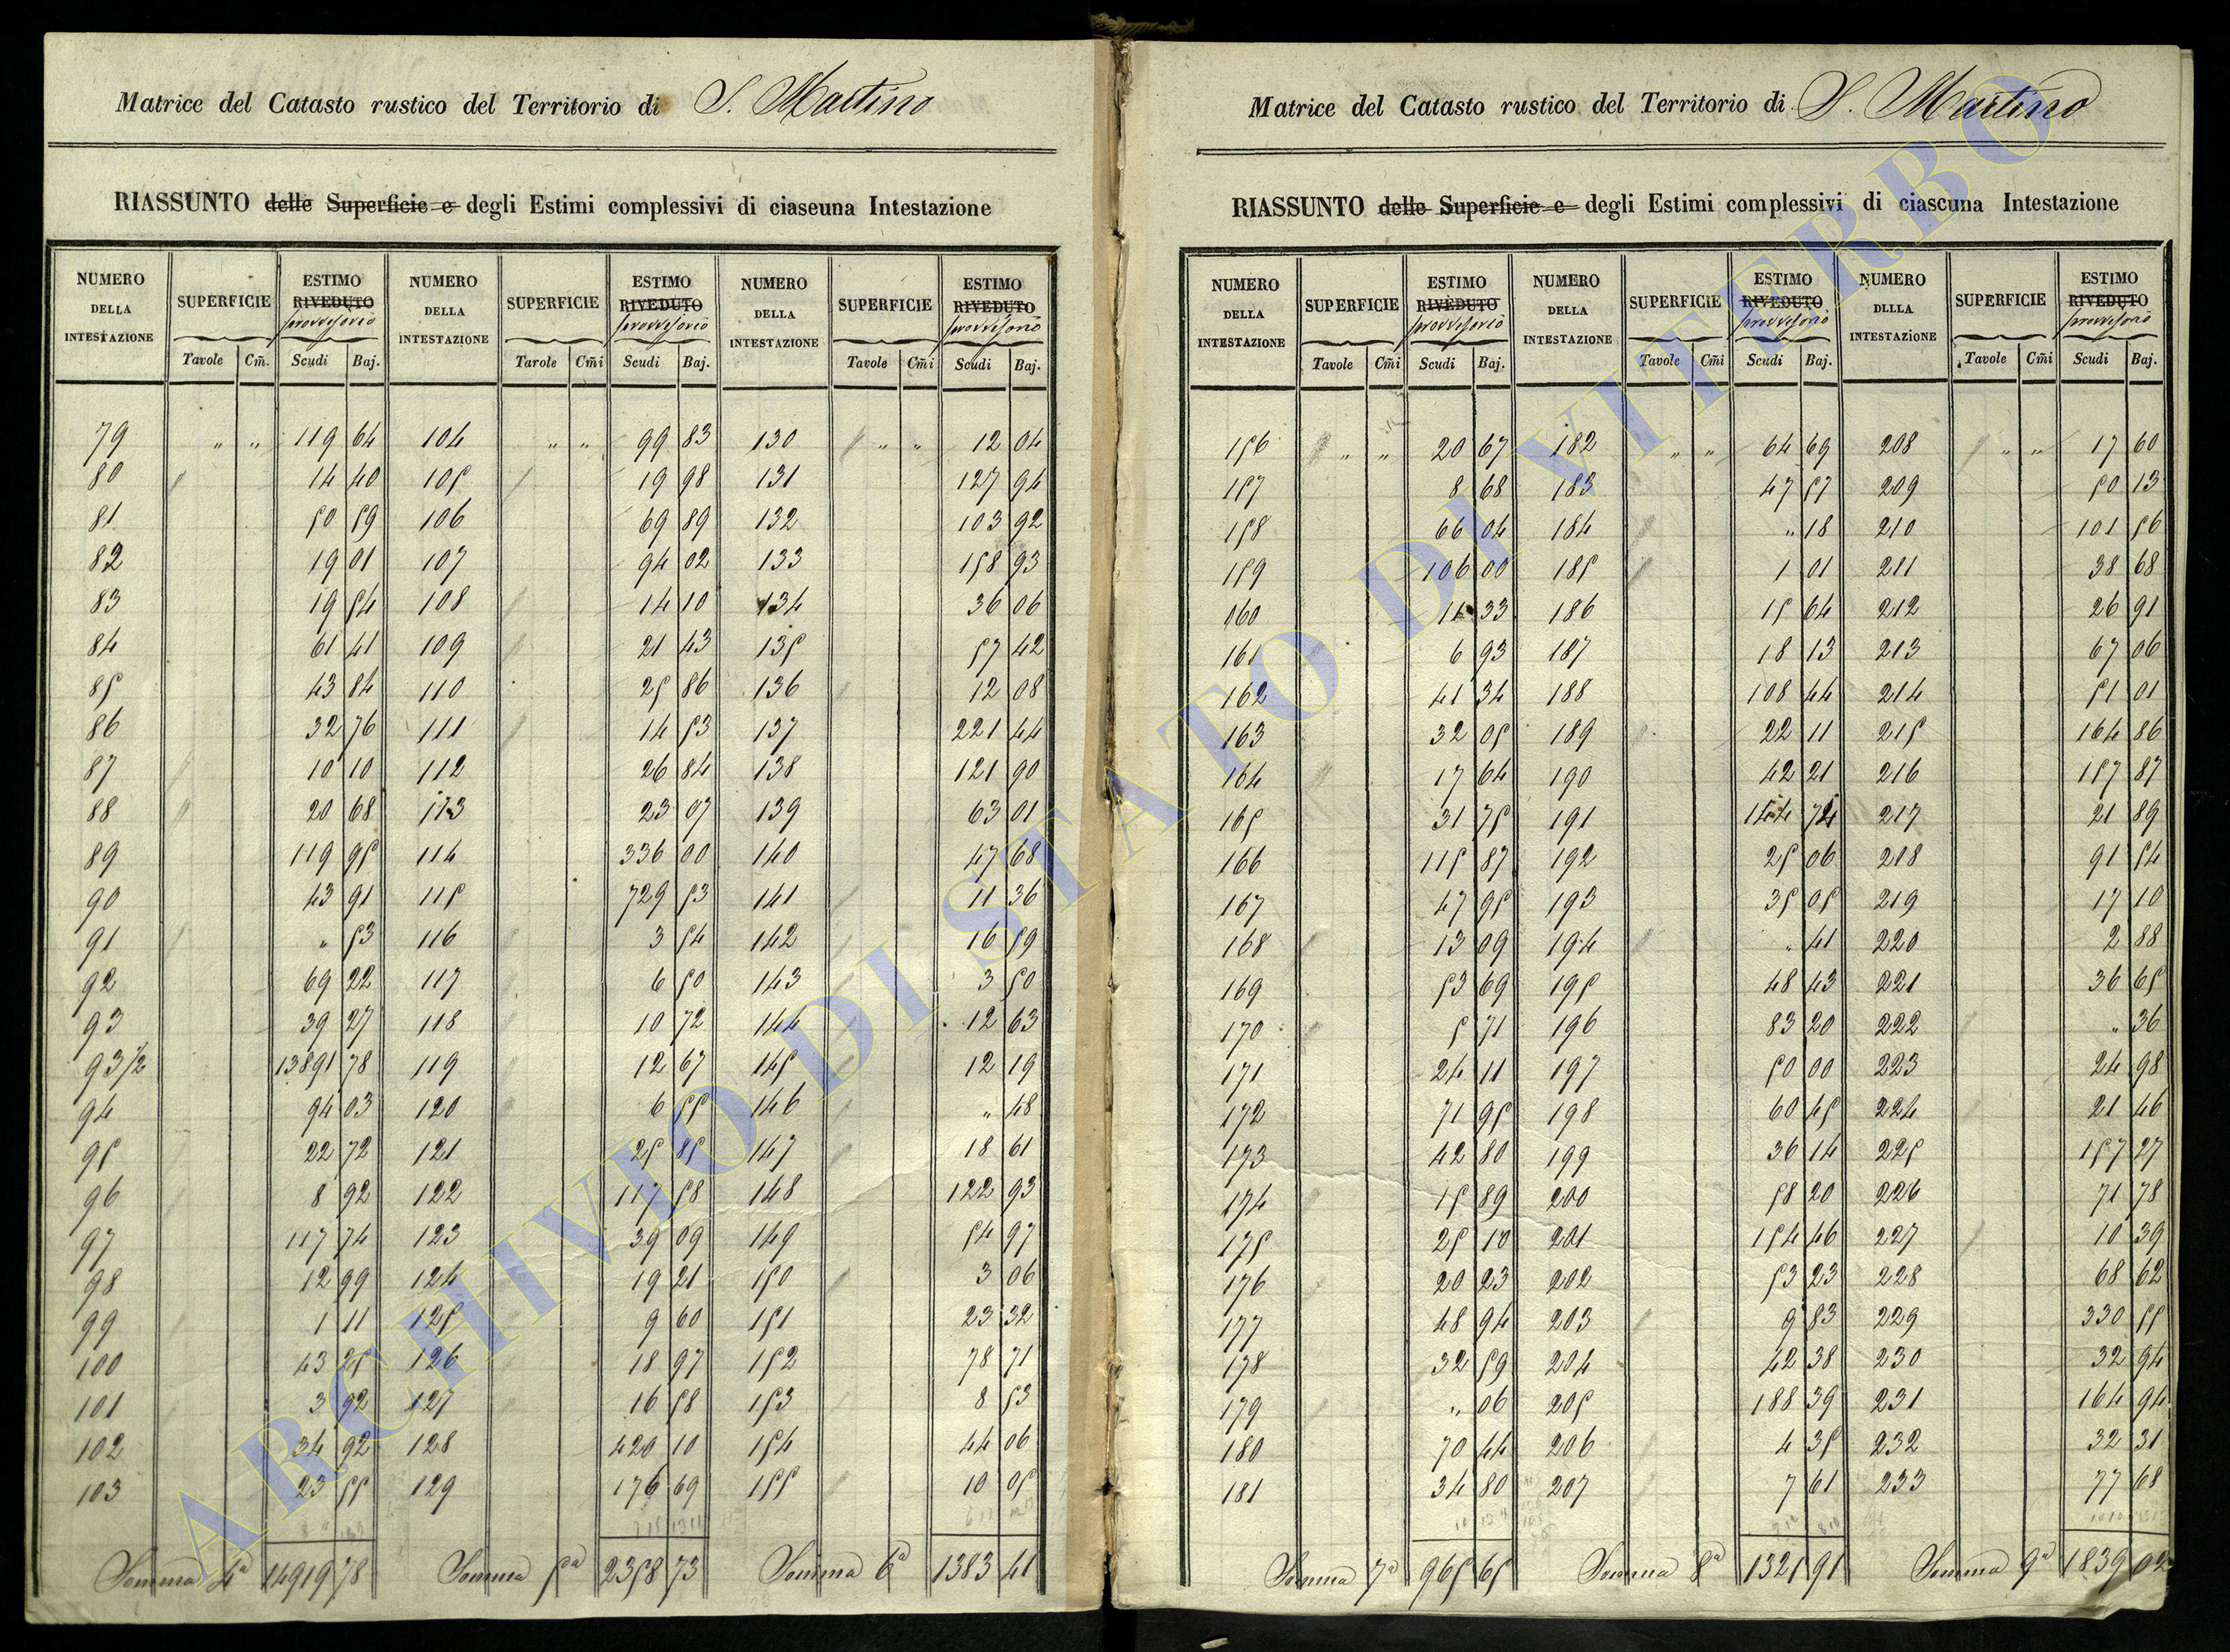 Matrice del Catasto rustico del Territorio di S. Martino
RIASSUNTO delle Superficie e degli Estimi complessivi di ciaseuna Intestazione
NUMERO DELLA INTESTAZIONE SUPERFICIE ESTIMO RIVEDUTO provvisorio NUMERO DELLA INTESTAZIONE SUPERFICIE ESTIMO RIVEDUTO provvisorio NUMERO DELLA INTESTAZIONE SUPERFICIE ESTIMO RIVEDUTO provvisorio
Tavole Cm̃. Scudi Baj. Tarole Cm̃i Scudi Baj. Tavole Cm̃i Scudi Baj.
79 " " 119 64 104 " " 99 83 130 " " 12 04
80 14 40 105 19 98 131 127 94
81 50 59 106 69 89 132 103 92
82 19 01 107 94 02 133 158 93
83 19 54 108 14 10 134 36 06
84 61 41 109 21 43 135 57 42
85 43 84 110 25 86 136 12 08
86 32 76 111 14 53 137 221 44
87 10 10 112 26 84 138 121 90
88 20 68 113 23 07 139 63 01
89 119 95 114 336 00 140 47 68
90 43 91 115 729 53 141 11 36
91 " 53 116 3 54 142 16 59
92 69 22 117 6 50 143 3 50
93 39 27 118 10 72 144 12 63
93 1/2 13891 78 119 12 67 145 12 19
94 94 03 120 6 55 146 " 48
95 22 72 121 25 85 147 18 61
96 8 92 122 117 58 148 122 93
97 117 74 123 39 09 149 54 97
98 12 99 124 19 21 150 3 06
99 1 11 125 9 60 151 23 32
100 43 25 126 18 97 152 78 71
101 3 92 127 16 58 153 8 53
102 34 92 128 420 10 154 44 06
103 23 55 129 176 69 155 10 05
Somma 4a 14919 78 Somma 5a 2358 73 Somma 6a 1383 41
Matrice del Catasto rustico del Territorio di S. Martino
RIASSUNTO delle Superficie e degli Estimi complessivi di ciascuna Intestazione
NUMERO DELLA INTESTAZIONE SUPERFICIE ESTIMO RIVEDUTO provvisorio NUMERO DELLA INTESTAZIONE SUPERFICIE ESTIMO RIVEDUTO provvisorio NUMERO DLLLA INTESTAZIONE SUPERFICIE ESTIMO RIVEDUTO provvisorio
Tavole Cm̃i Scudi Baj. Tavole Cm̃i Scudi Baj. Tavole Cm̃i Scudi Baj.
156 " " 20 67 182 " " 64 69 208 " " 17 60
157 8 68 183 47 57 209 50 13
158 66 04 184 " 18 210 101 56
159 106 00 185 1 01 211 38 68
160 33 186 15 64 212 26 91
161 6 93 187 18 13 213 67 06
162 41 34 188 108 44 214 51 01
163 32 05 189 22 11 215 164 86
164 17 64 190 42 21 216 157 87
165 31 75 191 144 74 217 21 89
166 115 87 192 25 06 218 91 54
167 47 95 193 35 05 219 17 10
168 13 09 194 " 41 220 2 88
169 53 69 195 48 43 221 36 65
170 5 71 196 83 20 222 " 36
171 24 11 197 50 00 223 24 98
172 71 95 198 60 45 224 21 46
173 42 80 199 36 14 225 157 27
174 15 89 200 58 20 226 71 78
175 25 10 201 154 46 227 10 39
176 20 23 202 53 23 228 68 62
177 48 94 203 9 83 229 330 55
178 32 59 204 42 38 230 32 94
179 " 06 205 188 39 231 164 94
180 70 44 206 4 35 232 32 31
181 34 80 207 7 61 233 77 68
Somma 7a 965 65 Somma 8a 1321 91 Somma 9a 1839 02
ARCHIVIO DI STATO DI VITERBO